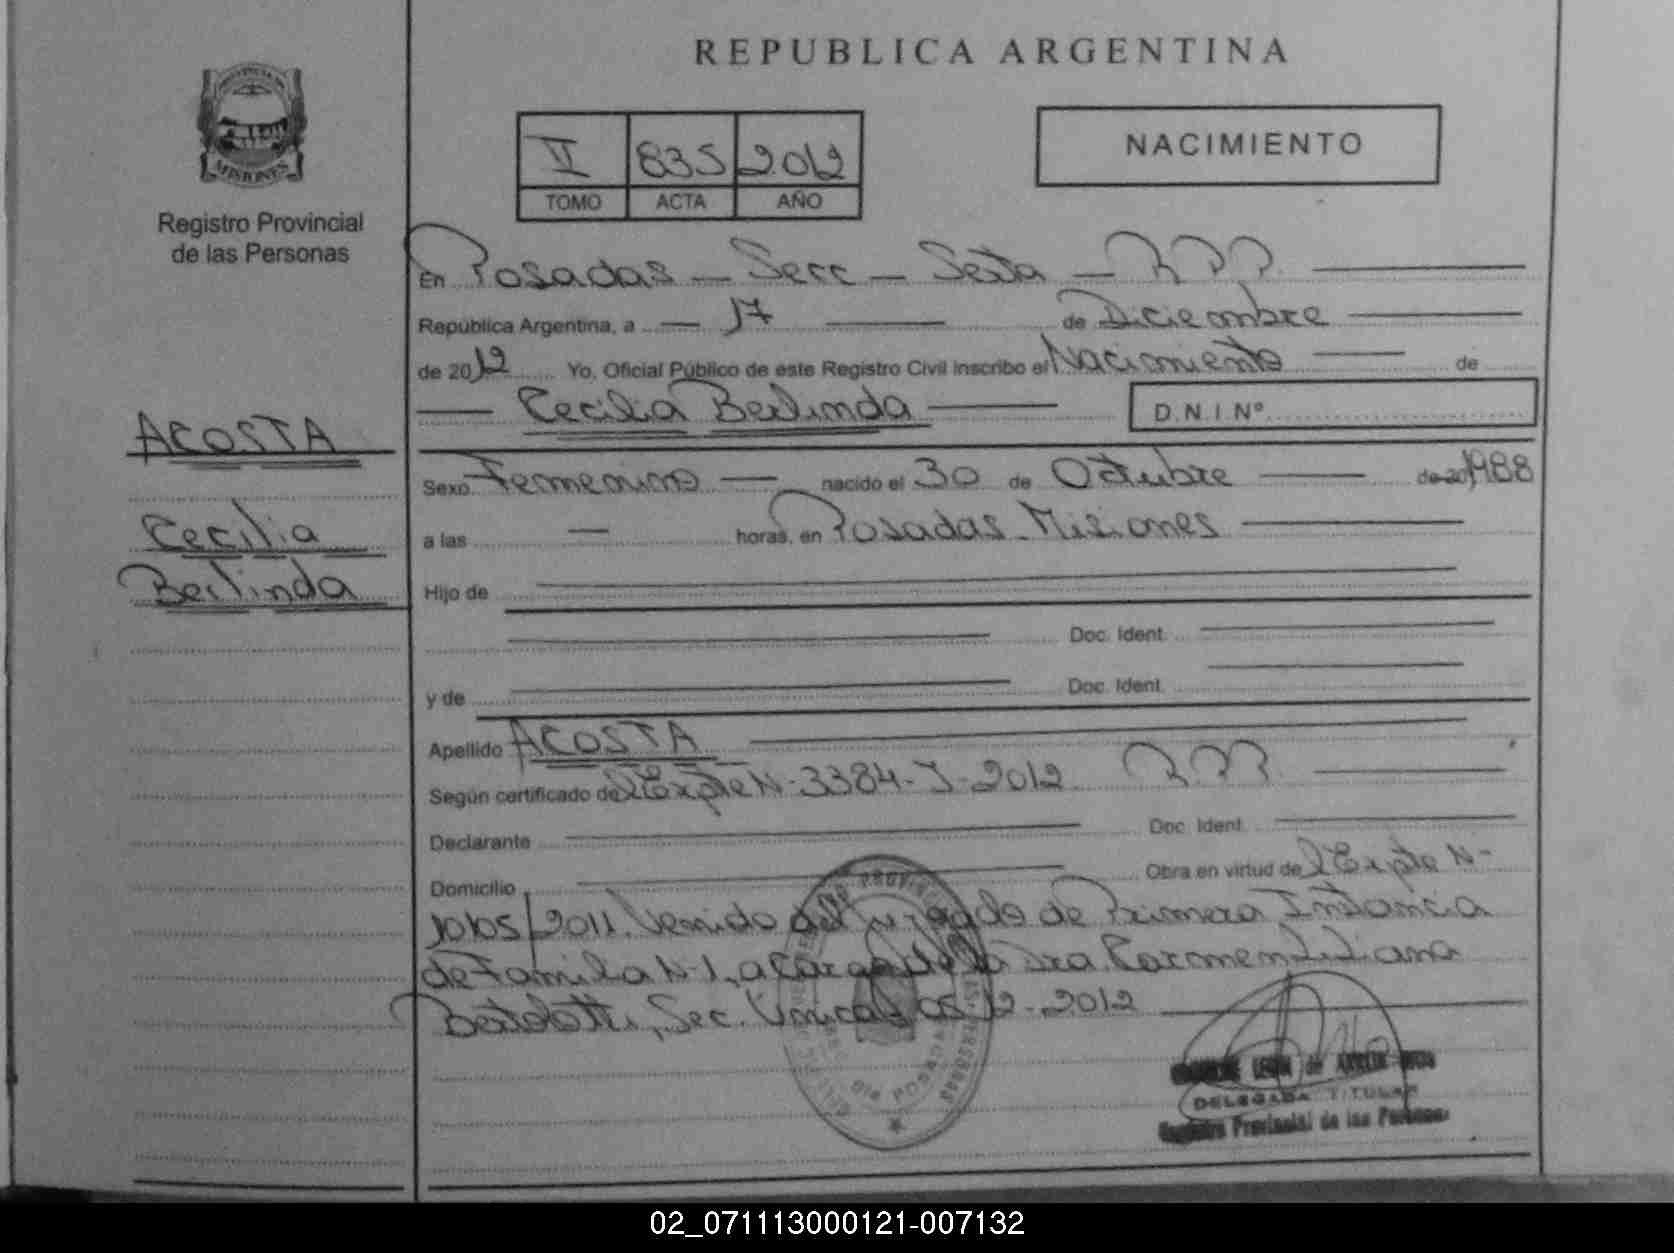 REPUBLICA ARGENTINA
PROVINCIA DE
MISIONES
Registro Provincial
de las Personas
II 835 2012
TOMO ACTA AÑO
NACIMIENTO
En Posadas - Secc - Sexta - RPP.
República Argentina, a 17 de Diciembre
de 2012 Yo, Oficial Público de este Registro Civil Inscribo el Nacimiento de
Cecilia Berlinda D.N.I. Nº
ACOSTA
Cecilia
Berlinda
Sexo Femenino nacido el 30 de Octubre de 20 1988
a las — horas, en Posadas - Misiones
Hijo de
Doc. Ident.
y de Doc. Ident.
Apellido ACOSTA
Según certificado de Expte N-3384-J-2012 RPP
Declarante Doc. Ident.
Domicilio Obra en virtud de Expte N-
/2011. Venido del Juzgado de Primera Instancia
de Familia N-1, a Cargo de la Dra. Carmen Liliana
Bertolotti, Sec. Unica, 05-12-2012
DELEGADA TITULAR
Registro Provincial de las Personas
02_071113000121-007132